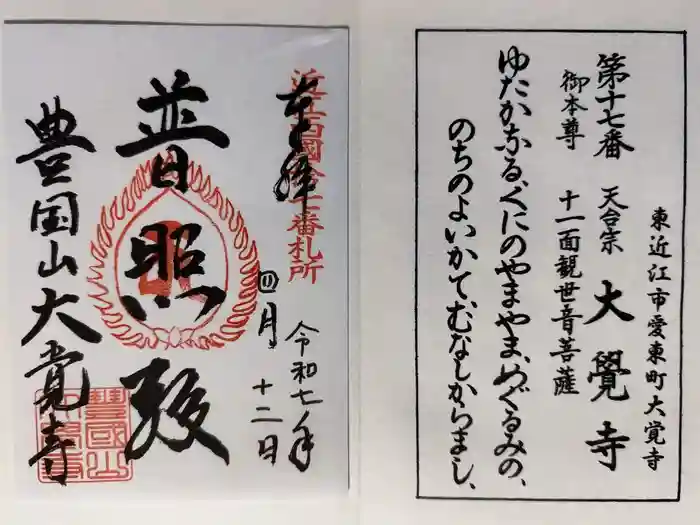 東近江市愛東町大覚寺
第十七番 天台宗 大覺寺
御本尊 十一面観世音菩薩
ゆたかなる、くにのやまやま、めぐるみの、
のちのよいかで、むなしからまし、
奉拝
近江西國第十七番札所
令和七年
四月十二日
普照殿
豊国山大覚寺
豐國山